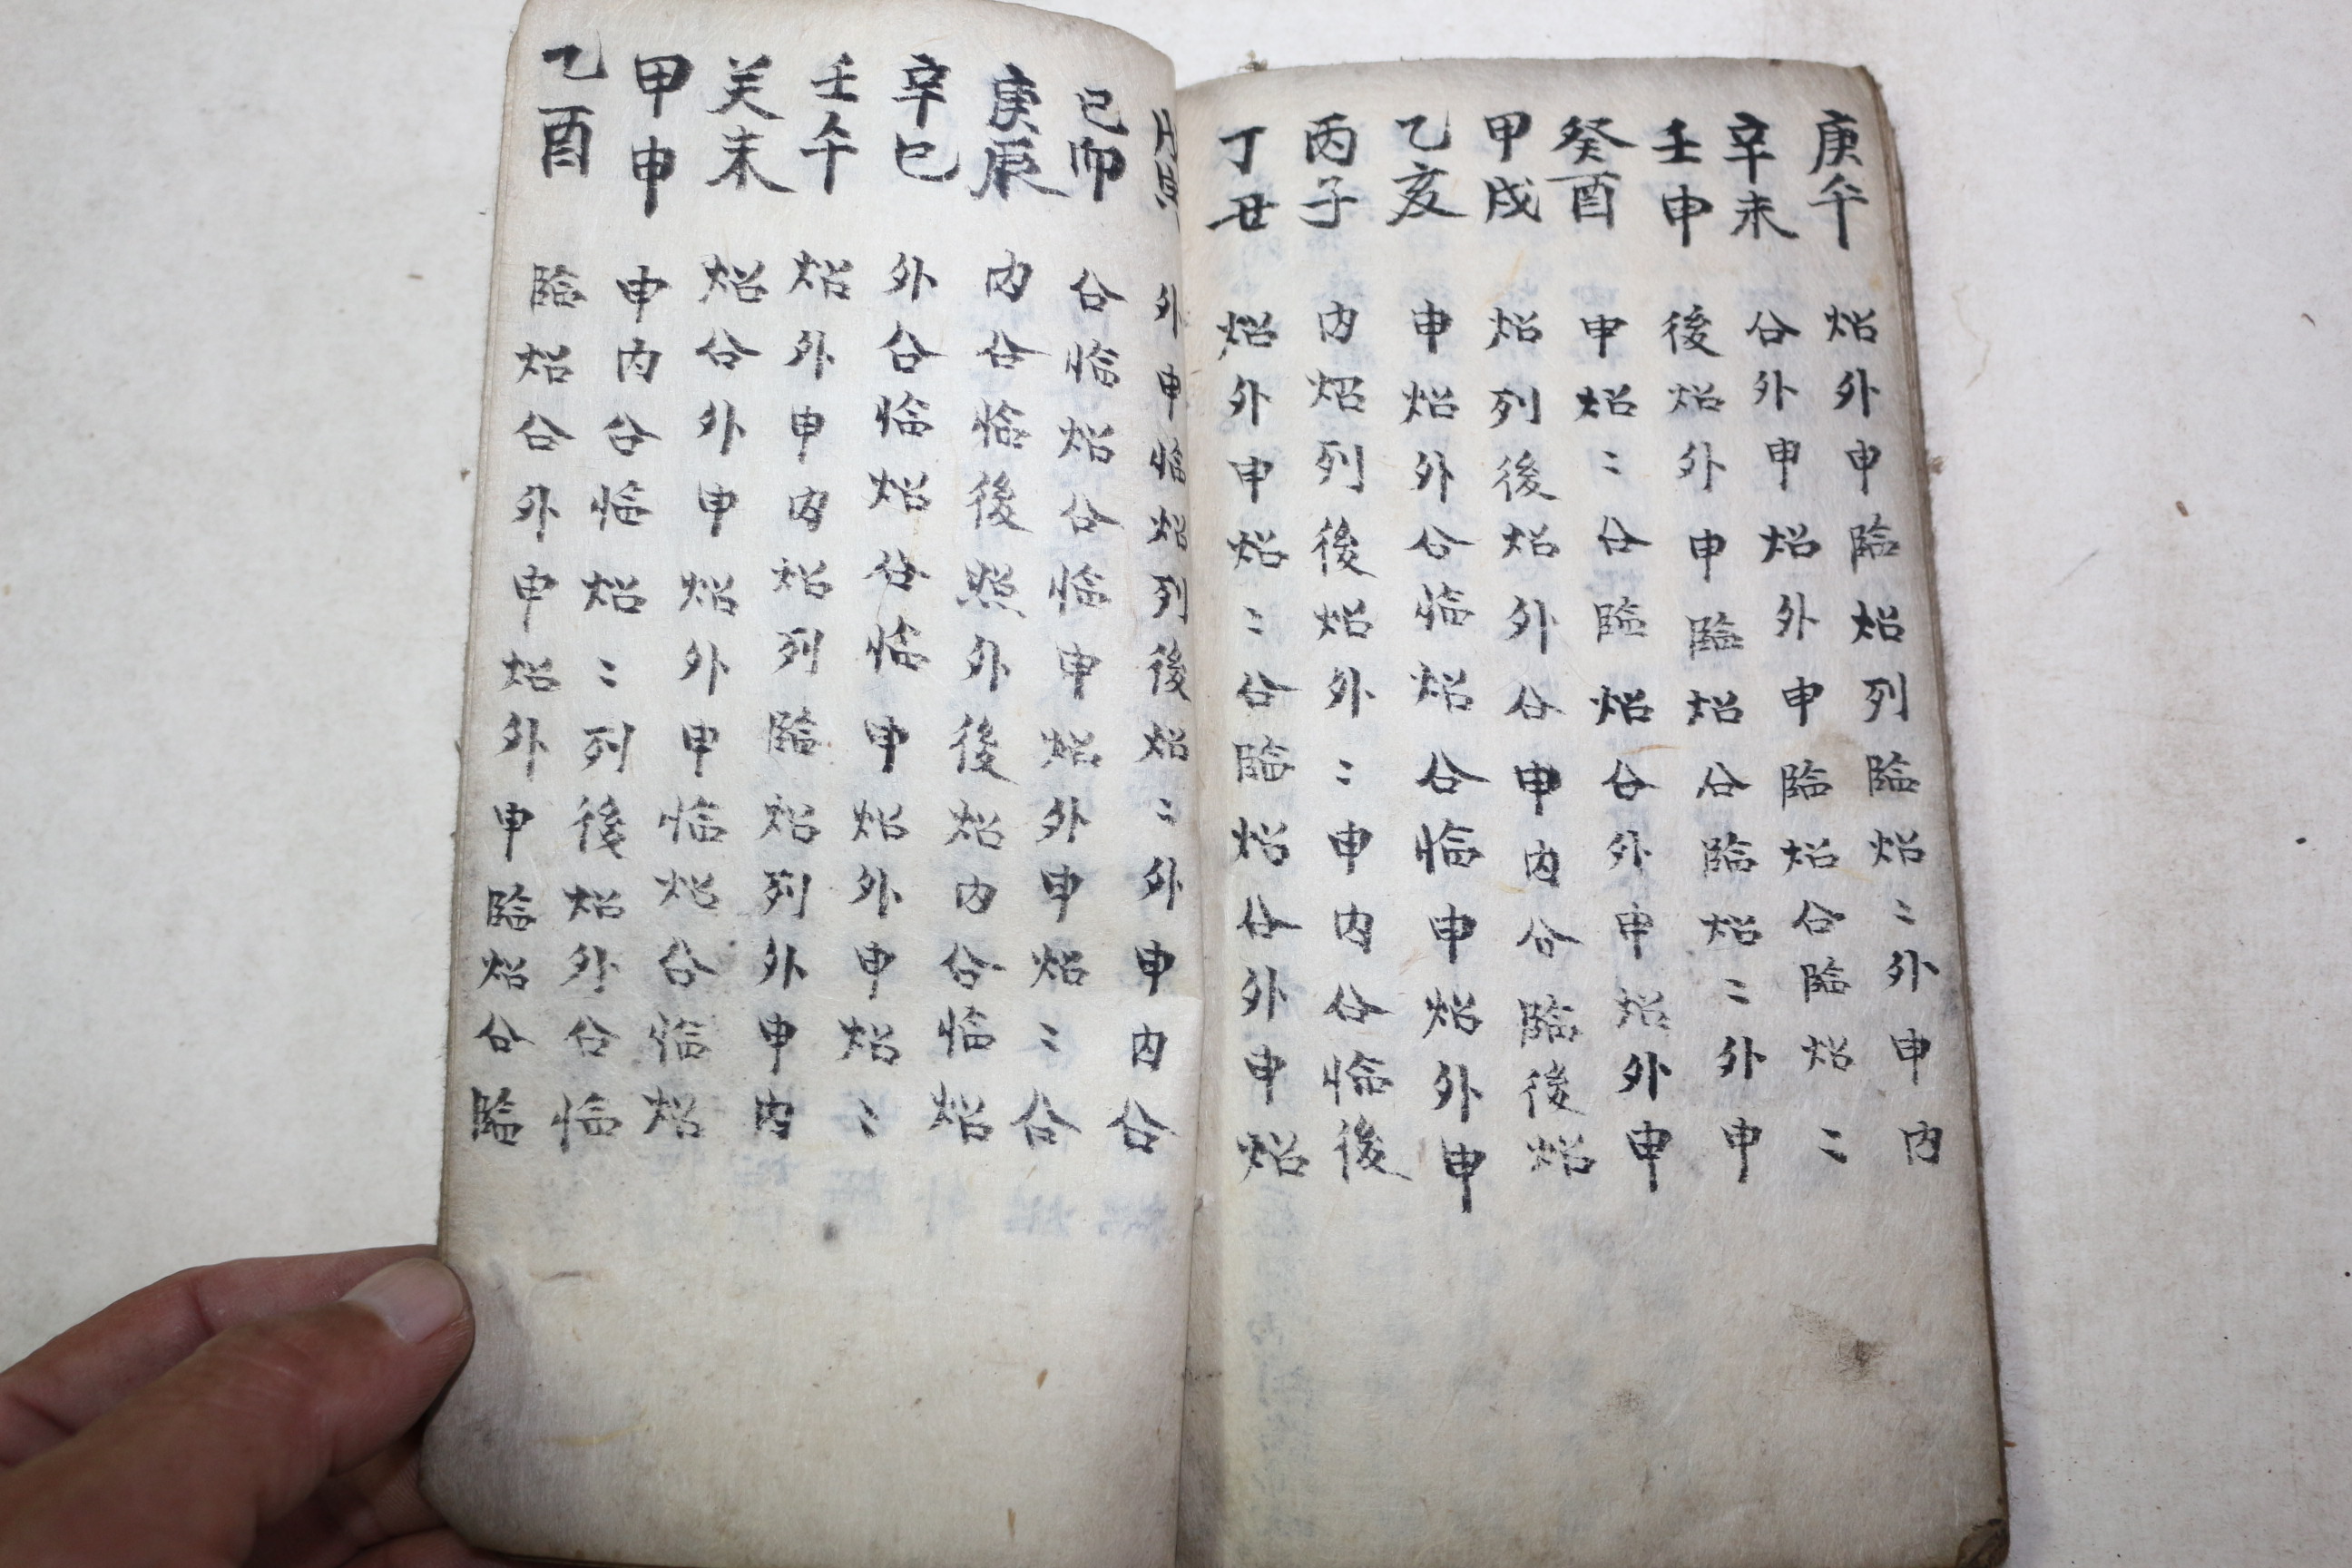 庚午 炤外申臨炤列臨炤〻外申内
辛未 合外申炤外申臨炤合臨炤〻
壬申 後炤外申臨炤合臨炤〻外申
癸酉 申炤〻合臨炤合外申炤外申
甲戌 炤列後炤外合申内合臨後炤
乙亥 申炤外合临炤合临申炤外申
丙子 内炤列後炤外〻申内合临後
丁丑 炤外申炤〻合臨炤合外申炤
外申临炤列後炤〻外申内合
己卯 合临炤合临申炤外申炤〻合
庚辰 内合临後照外後炤内合临炤
辛巳 外合临炤合临申炤外申炤〻
壬午 炤外申内炤列臨炤列外申内
癸未 炤合外申炤外申临炤合临炤
甲申 申内合临炤〻列後炤外合临
乙酉 臨炤合外申炤外申臨炤合臨